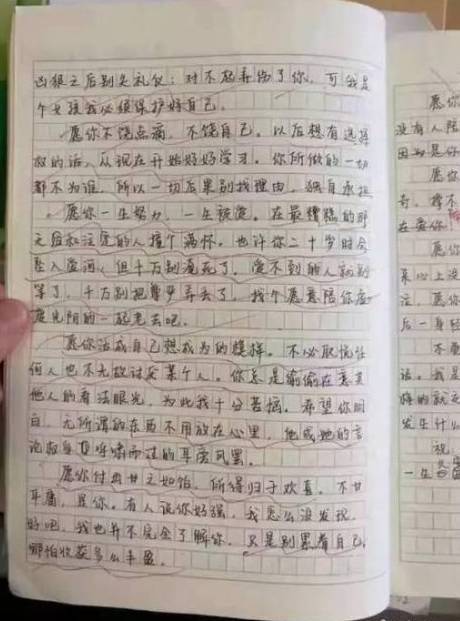 凶狠之后别失礼仪：对不起弄伤了你，可我是
个女孩我必须保护好自己。
愿你不饶点滴，不饶自己。以后想有选择
权的话，从现在开始好好学习。你所做的一切
都不为谁，所以一切后果别找理由，独自承担
愿你一生努力，一生被爱。在最糟糕的那
天会和注定的人撞个满怀。也许你二十岁时会
坠入爱河，但千万别淹死了，爱不到的人就别
等了，千万别把尊严弄丢了，找个愿意陪你虚
度光阴的一起老去吧。
愿你活成自己想成为的模样。不必取悦任
何人也不无故讨厌某个人。你总是偷偷在意其
他人的看法眼光，为此我十分苦恼。希望你明
白，无所谓的东西不用放在心里，他或她的言
论应与耳呼啸而过的耳旁风罢。
愿你付出甘之如饴，所得归于欢喜。不甘
平庸，是你。有人说你好强，我怎么没发现，
好吧，我也并不完全了解你。只是别累着自己，
哪怕收获多么丰盈。
愿你
没有人陪
因为是你
愿你
奇，撑不
在爱你
愿你
后一身轻
发生什么
祝，
一生